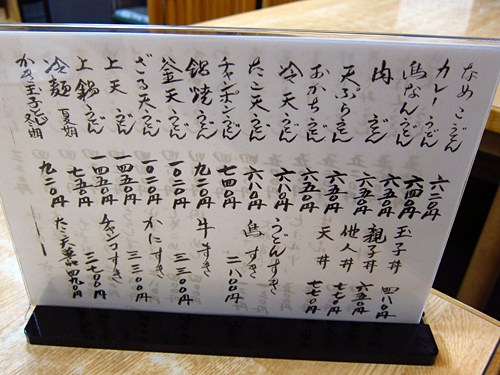 なめこうどん 六二〇円
カレーうどん 六四〇円
鳥なんうどん 六四〇円
肉うどん 六五〇円
天ぷらうどん 六五〇円
おかちうどん 六五〇円
冷天うどん 六八〇円
たこ天うどん 六八〇円
チャンポンうどん 七四〇円
鍋焼うどん 九二〇円
釜天うどん 一〇二〇円
ざる天うどん 一〇二〇円
上天うどん 一四五〇円
上鍋うどん 一四五〇円
冷麺 夏期 七五〇円
かき玉子 冬期 九二〇円
玉子丼 四八〇円
親子丼 六五〇円
他人丼 七七〇円
天丼 七七〇円
うどんすき
鳥すき 二八〇〇円
牛すき 三三〇〇円
かにすき 三三〇〇円
チャンコすき 二七〇〇円
たこ天単品 四九〇円